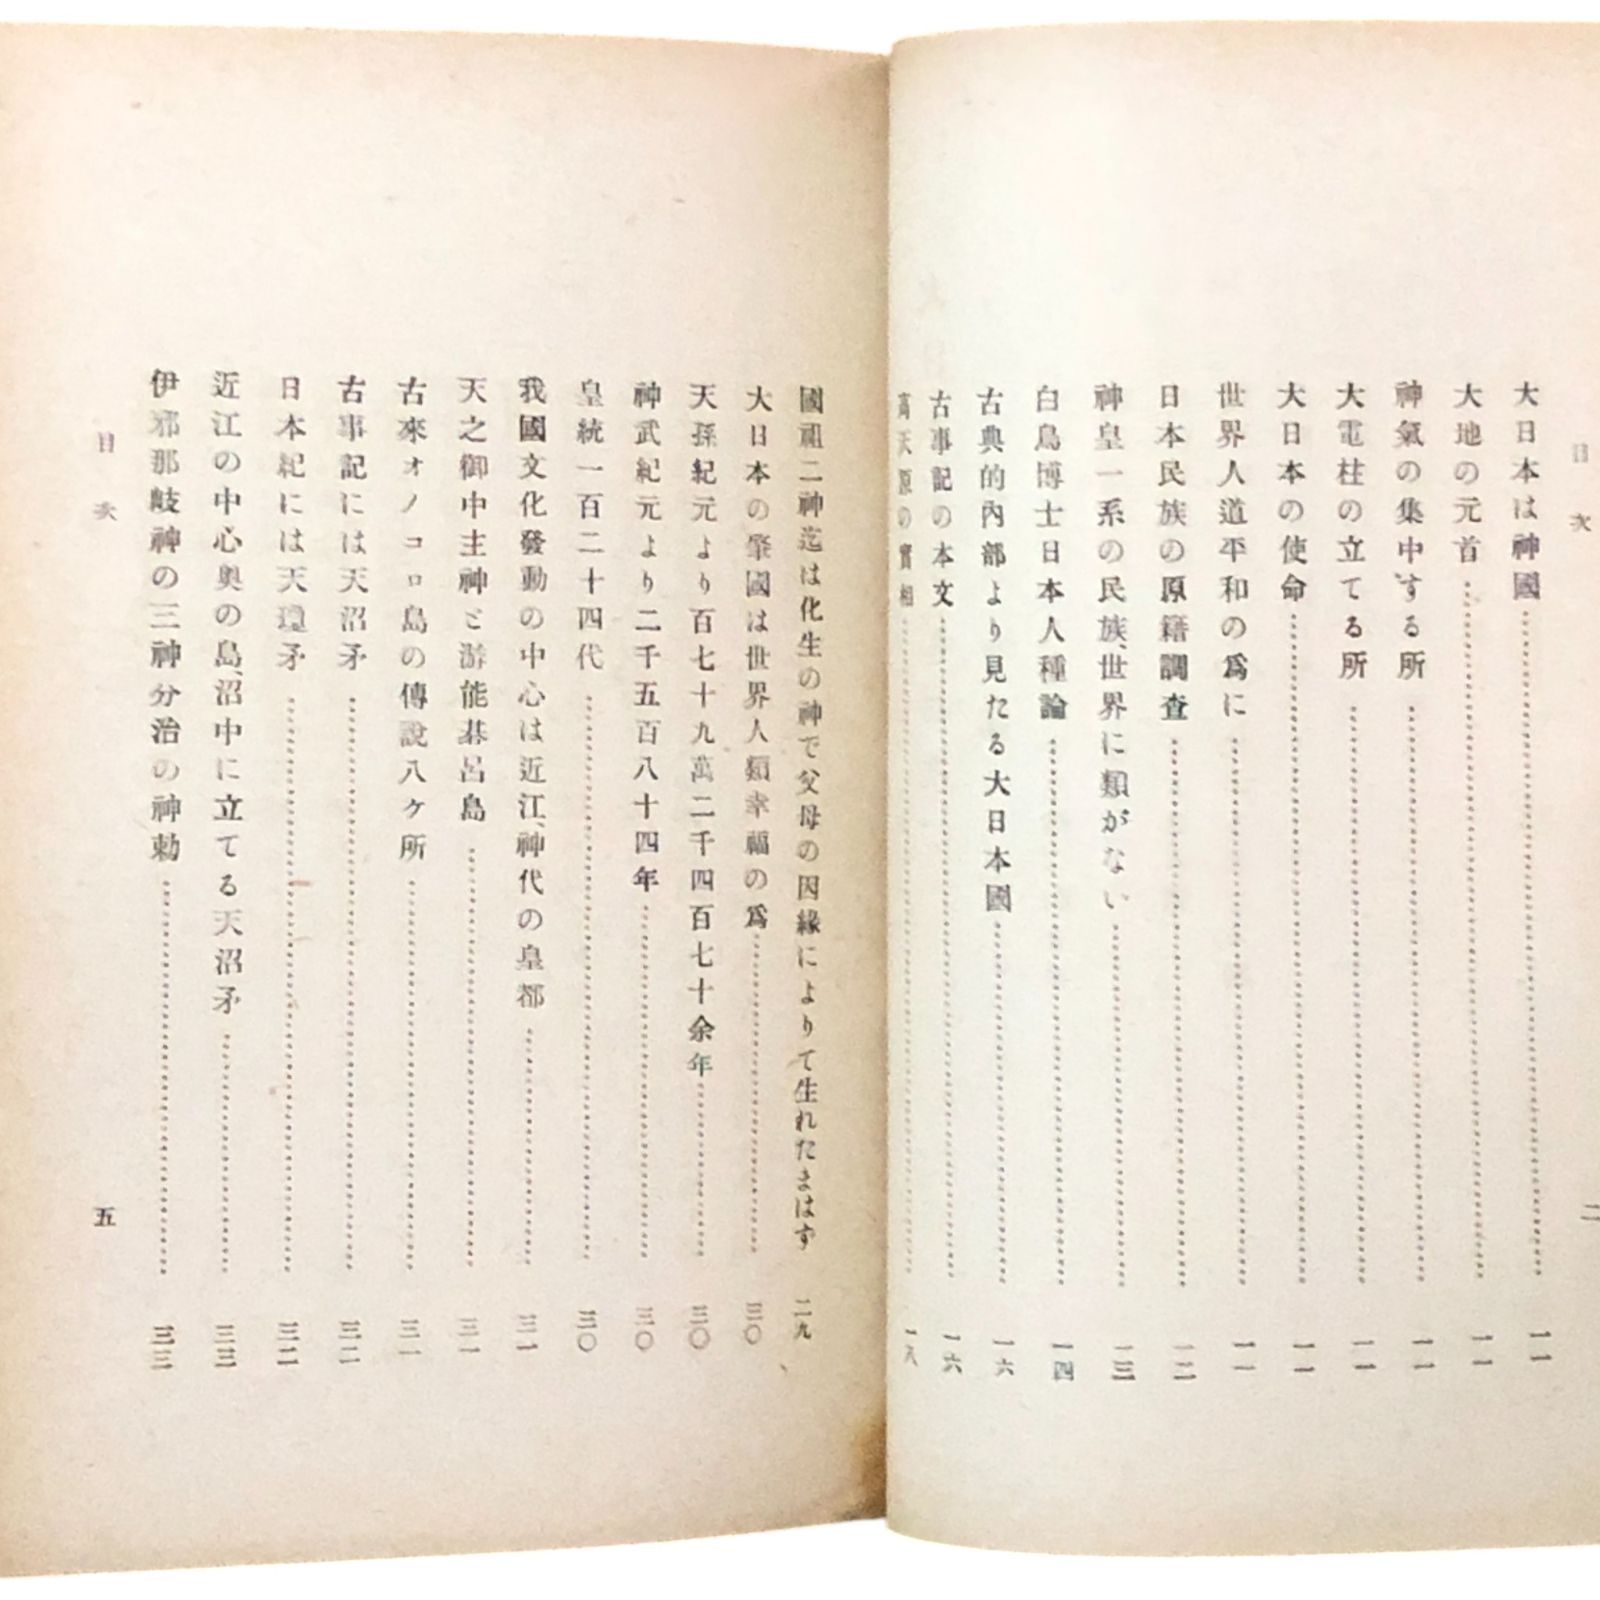 目次
二
大日本は神國 一一
大地の元首 一一
神氣の集中する所 一一
大電柱の立てる所 一一
大日本の使命 一一
世界人道平和の爲に 一一
日本民族の原籍調査 一二
神皇一系の民族、世界に類がない 一三
白鳥博士日本人種論 一四
古典的內部より見たる大日本國 一六
古事記の本文 一六
高天原の實相 一八
國祖二神迄は化生の神で父母の因緣によりて生れたまはず 二九
大日本の肇國は世界人類幸福の爲 三〇
天孫紀元より百七十九萬二千四百七十余年 三〇
神武紀元より二千五百八十四年 三〇
皇統一百二十四代 三〇
我國文化發動の中心は近江、神代の皇都 三一
天之御中主神と游能碁呂島 三一
古來オノコロ島の傳說八ケ所 三一
古事記には天沼矛 三二
日本紀には天瓊矛 三二
近江の中心奧の島、沼中に立てる天沼矛 三三
伊邪那岐神の三神分治の神勅 三三
目次
五